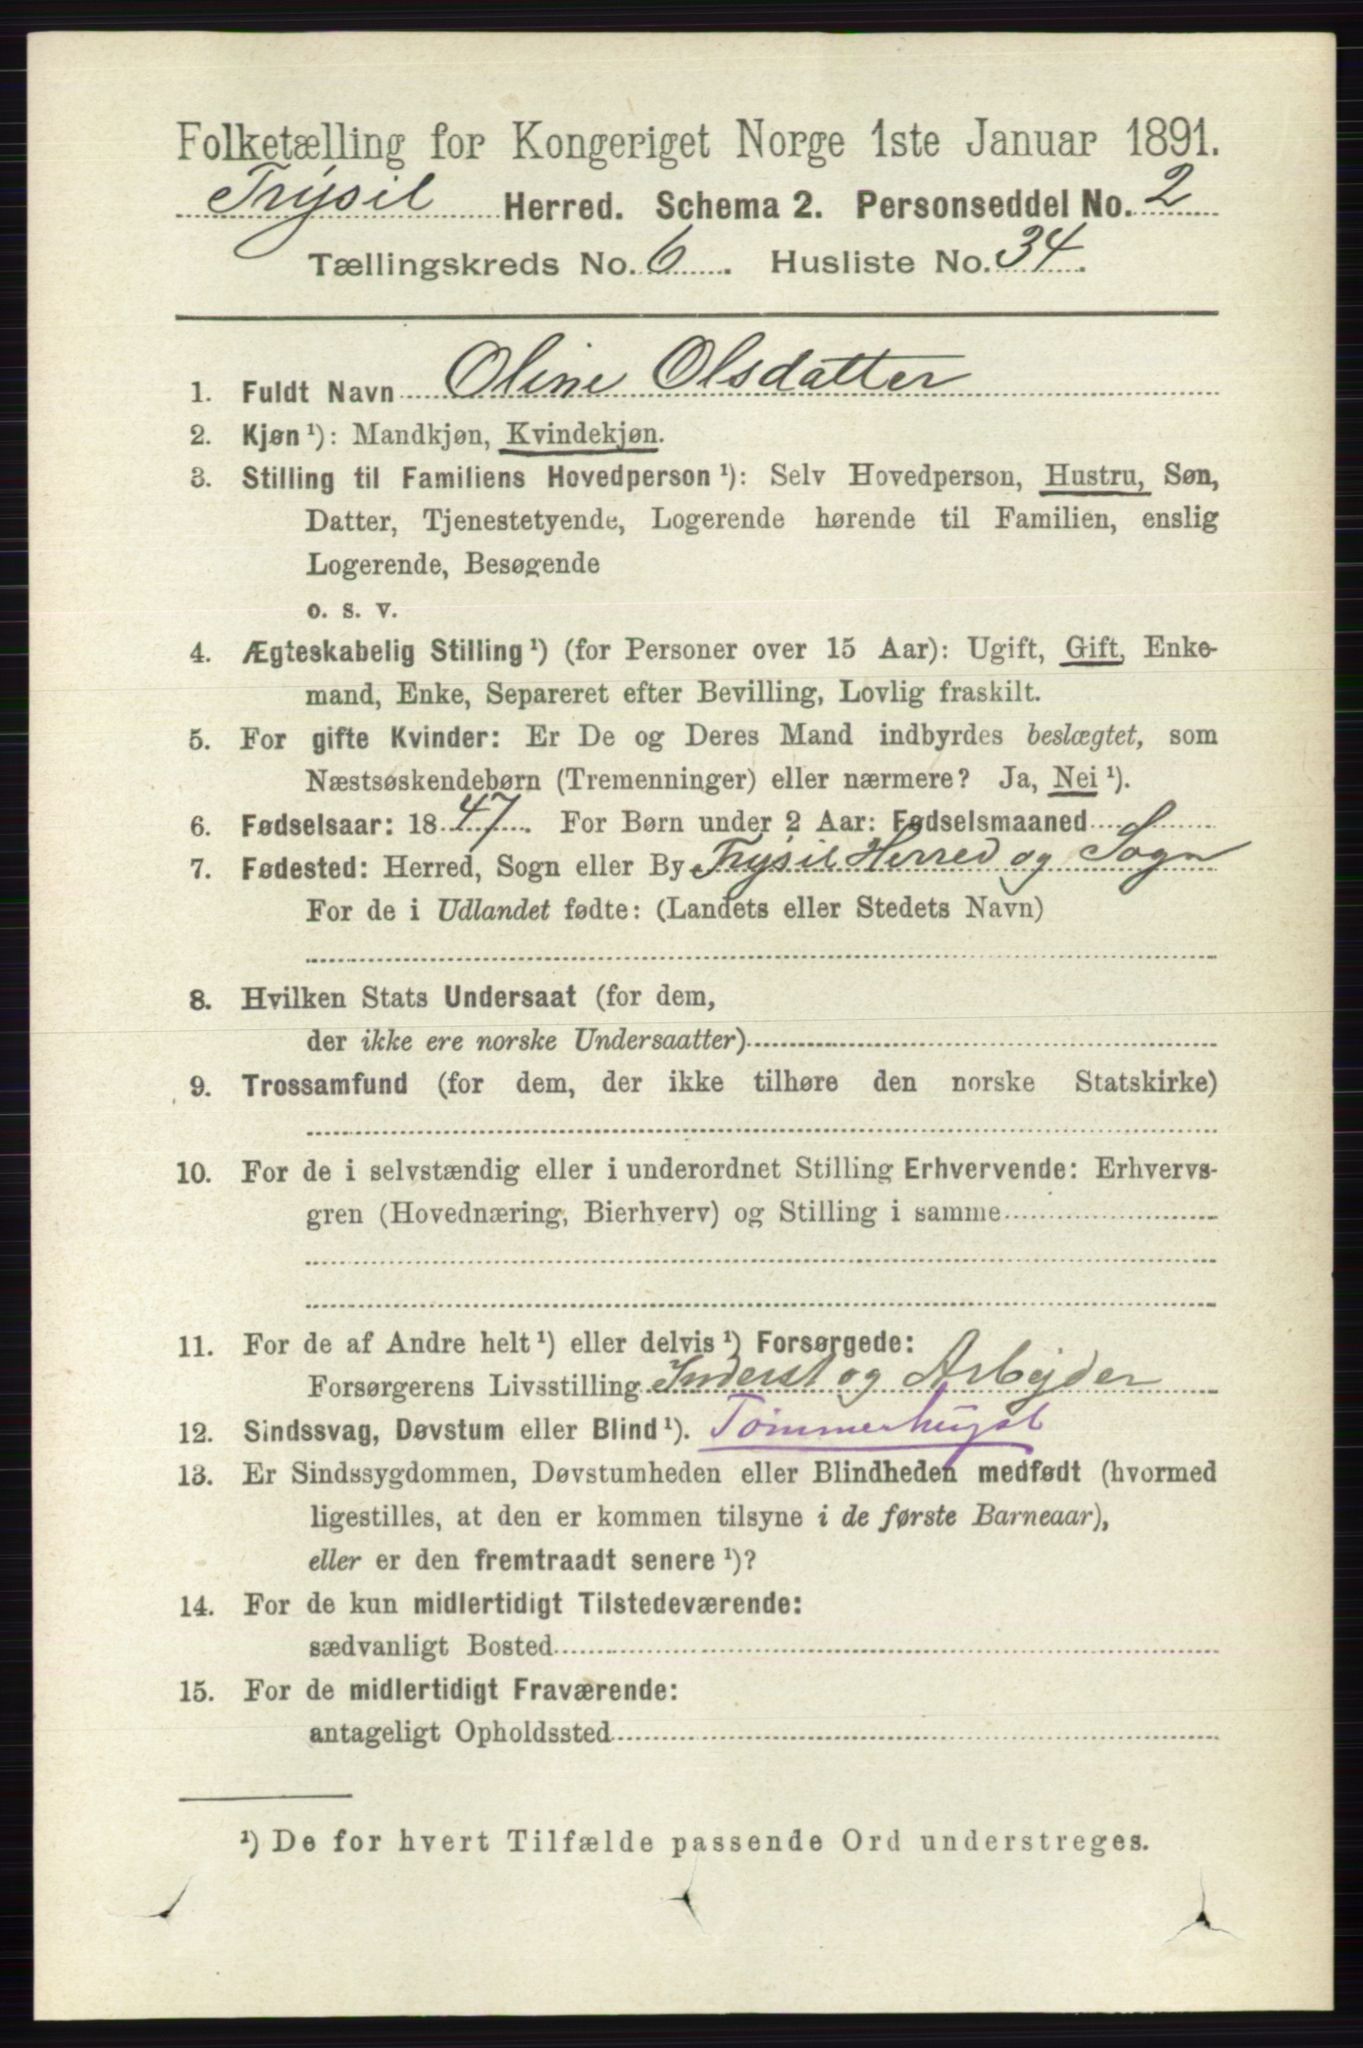 Folketælling for Kongeriget Norge 1ste Januar 1891.
Trysil Herred. Schema 2. Personseddel No. 2
Tællingskreds No. 6. Husliste No. 34.
1. Fuldt Navn Oline Olsdatter
2. Kjøn ¹): Mandkjøn, Kvindekjøn.
3. Stilling til Familiens Hovedperson ¹): Selv Hovedperson, Hustru, Søn,
Datter, Tjenestetyende, Logerende hørende til Familien, enslig
Logerende, Besøgende
o. s. v.
4. Ægteskabelig Stilling ¹) (for Personer over 15 Aar): Ugift, Gift, Enke-
mand, Enke, Separeret efter Bevilling, Lovlig fraskilt.
5. For gifte Kvinder: Er De og Deres Mand indbyrdes beslægtet, som
Næstsøskendebørn (Tremenninger) eller nærmere? Ja, Nei ¹).
6. Fødselsaar: 1847. For Børn under 2 Aar: Fødselsmaaned
7. Fødested: Herred, Sogn eller By Trysil Herred og Sogn
For de i Udlandet fødte: (Landets eller Stedets Navn)
8. Hvilken Stats Undersaat (for dem,
der ikke ere norske Undersaatter)
9. Trossamfund (for dem, der ikke tilhøre den norske Statskirke)
10. For de i selvstændig eller i underordnet Stilling Erhvervende: Erhvervs-
gren (Hovednæring, Bierhverv) og Stilling i samme
11. For de af Andre helt ¹) eller delvis ¹) Forsørgede:
Forsørgerens Livsstilling Inderst og Arbejder
12. Sindssvag, Døvstum eller Blind ¹). Tømmerhugst
13. Er Sindssygdommen, Døvstumheden eller Blindheden medfødt (hvormed
ligestilles, at den er kommen tilsyne i de første Barneaar),
eller er den fremtraadt senere ¹)?
14. For de kun midlertidigt Tilstedeværende:
sædvanligt Bosted
15. For de midlertidigt Fraværende:
antageligt Opholdssted
¹) De for hvert Tilfælde passende Ord understreges.